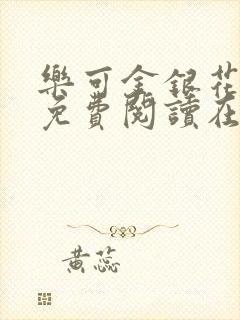 樂可金銀花
免費閱讀在
黃蕊